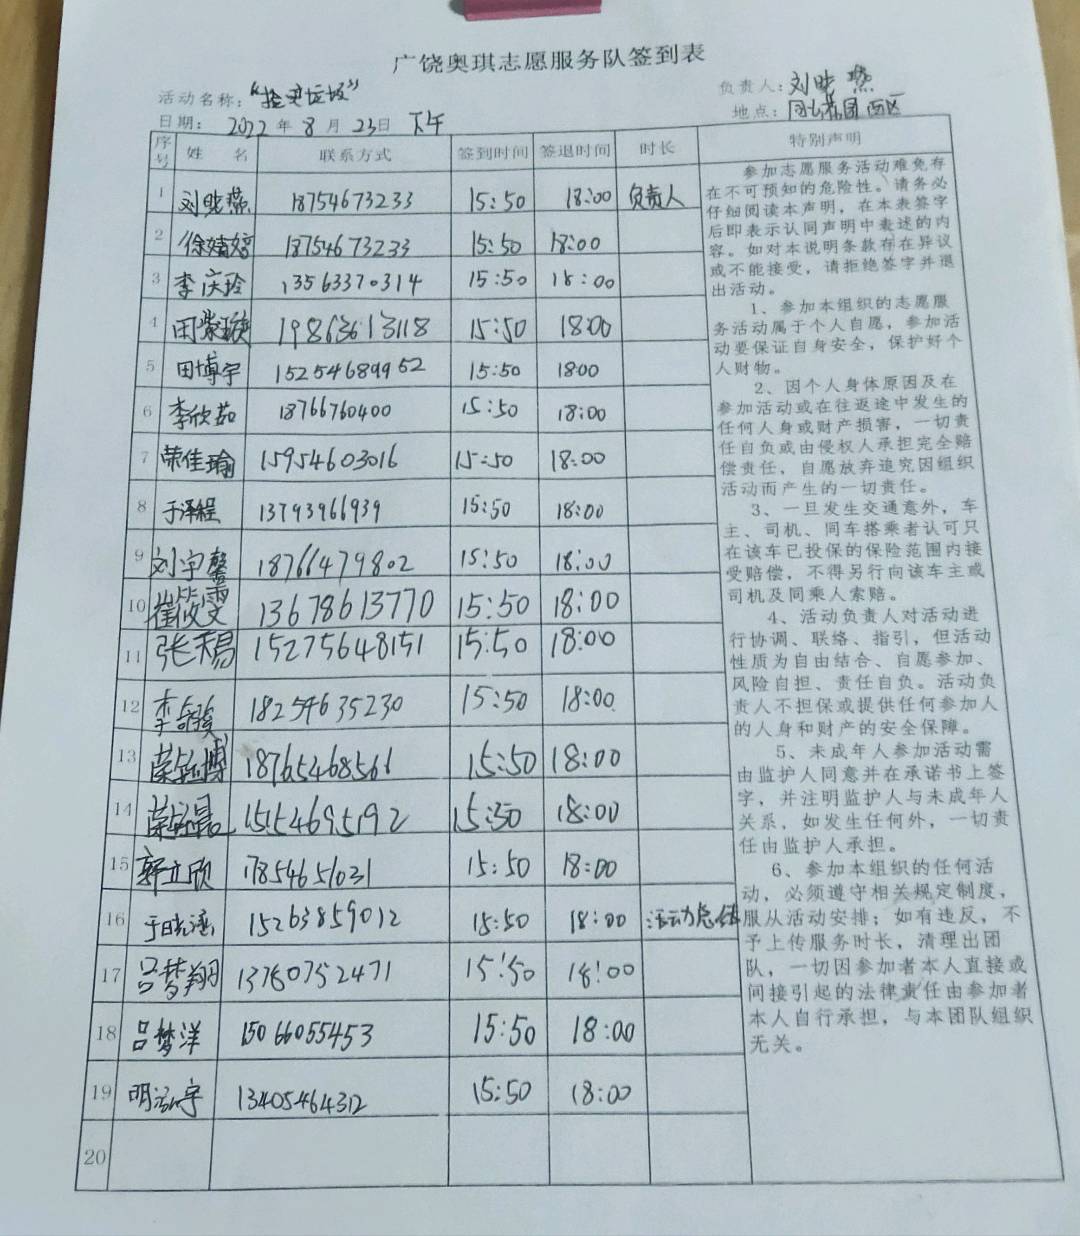 广饶奥琪志愿服务队签到表
活动名称：“捡垃圾” 负责人：刘晓燕
日期： 2022 年 8 月 23日 下午 地点： 花园西区
序号 姓 名 联系方式 签到时间 签退时间 时长 特别声明
1 刘晓燕 18754673233 15:50 18:00 负责人
2 徐婧婷 18754673233 15:50 18:00
3 李庆玲 13563370314 15:50 18:00
4 田 19863613118 15:50 18:00
5 田博宇 15254689952 15:50 18:00
6 李欣茹 18766760400 15:50 18:00
7 荣佳瑜 15954603016 15:50 18:00
8 于泽程 13793966939 15:50 18:00
9 刘宇馨 18766479802 15:50 18:00
10 崔筱雯 13678613770 15:50 18:00
11 张天易 15275648151 15:50 18:00
12 李 18254635230 15:50 18:00
13 荣 博 18765468566 15:50 18:00
14 荣 15154695192 15:50 18:00
15 郭立欣 17854651031 15:50 18:00
16 于晓 15263859012 15:50 18:00 活动总结
17 吕梦翔 13780752471 15:50 18:00
18 吕梦洋 15066055453 15:50 18:00
19 明泓宇 13405464312 15:50 18:00
20
参加志愿服务活动难免存
在不可预知的危险性。请务必
仔细阅读本声明，在本表签字
后即表示认同声明中表述的内
容。如对本说明条款存在异议
或不能接受，请拒绝签字并退
出活动。
1、参加本组织的志愿服
务活动属于个人自愿，参加活
动要保证自身安全，保护好个
人财物。
2、因个人身体原因及在
参加活动或在往返途中发生的
任何人身或财产损害，一切责
任自负或由侵权人承担完全赔
偿责任，自愿放弃追究因组织
活动而产生的一切责任。
3、一旦发生交通意外，车
主、司机、同车搭乘者认可只
在该车已投保的保险范围内接
受赔偿，不得另行向该车主或
司机及同乘人索赔。
4、活动负责人对活动进
行协调、联络、指引，但活动
性质为自由结合、自愿参加、
风险自担、责任自负。活动负
责人不担保或提供任何参加人
的人身和财产的安全保障。
5、未成年人参加活动需
由监护人同意并在承诺书上签
字，并注明监护人与未成年人
关系，如发生任何外，一切责
任由监护人承担。
6、参加本组织的任何活
动，必须遵守相关规定制度，
服从活动安排；如有违反，不
予上传服务时长，清理出团
队，一切因参加者本人直接或
间接引起的法律责任由参加者
本人自行承担，与本团队组织
无关。